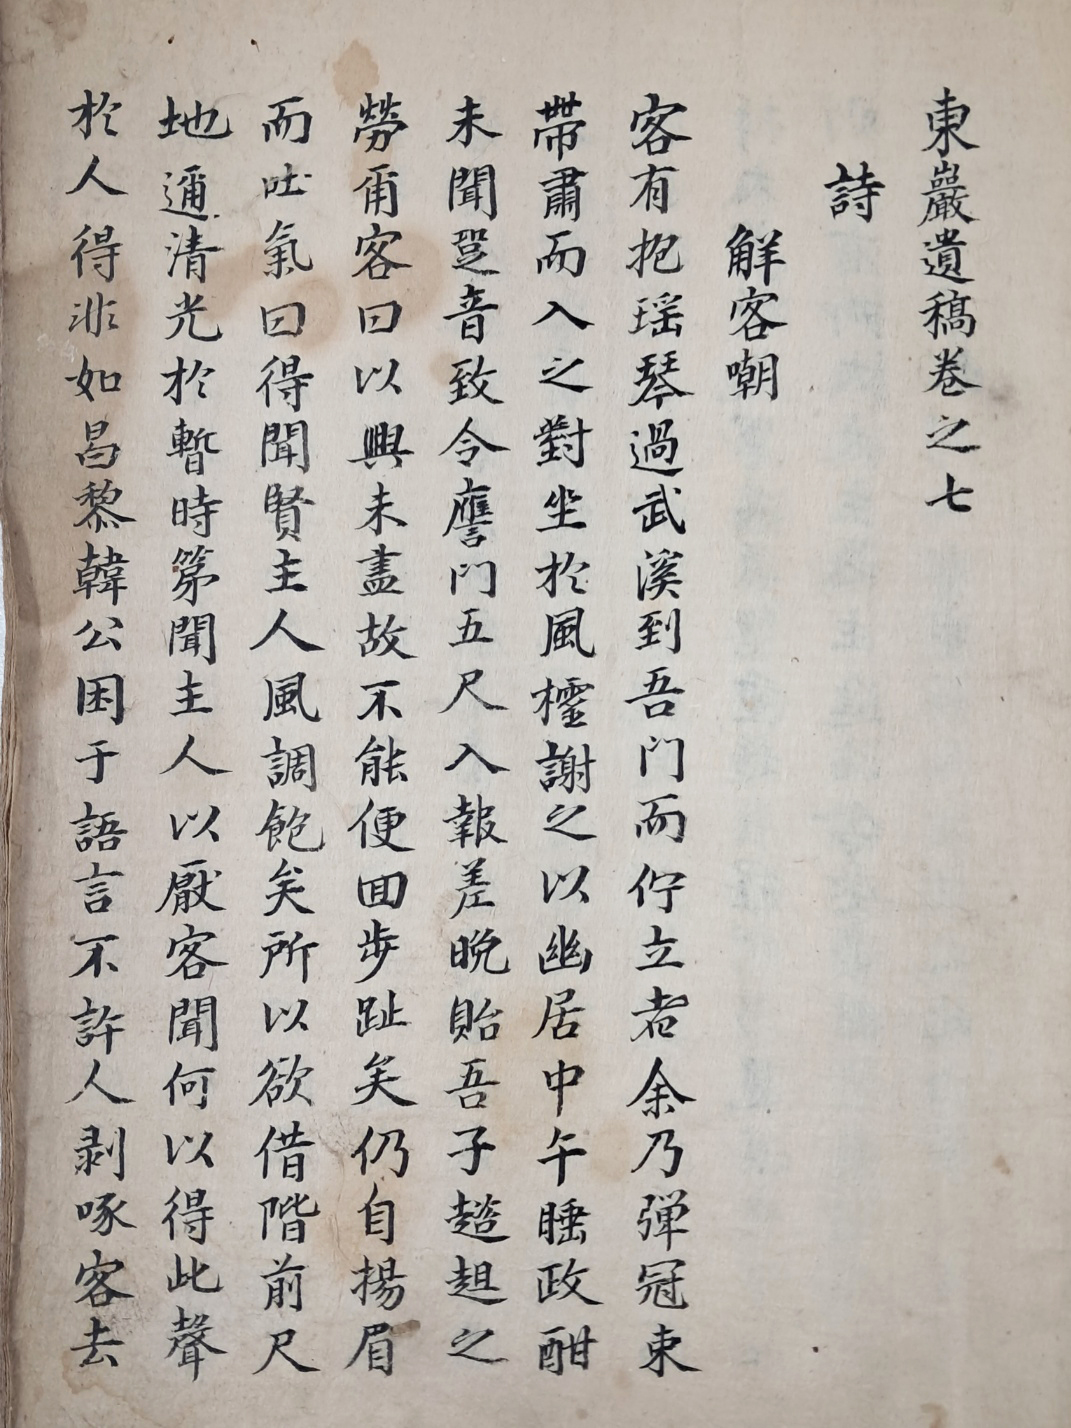 東巖遺稿卷之七
詩
解客嘲
客有抱瑶琴過武溪到吾門而佇立者余乃彈冠束
帶肅而入之對坐於風檉謝之以幽居中午睡政酣
未聞跫音致令譍門五尺入報差晩貽吾子趦趄之
勞甭客曰以興未盡故不能便回步趾矣仍自揚眉
而吐氣曰得聞賢主人風調飽矣所以欲借階前尺
地邇清光於暫時第聞主人以厭客聞何以得此聲
於人得非如昌黎韓公困于語言不許人剥啄客去